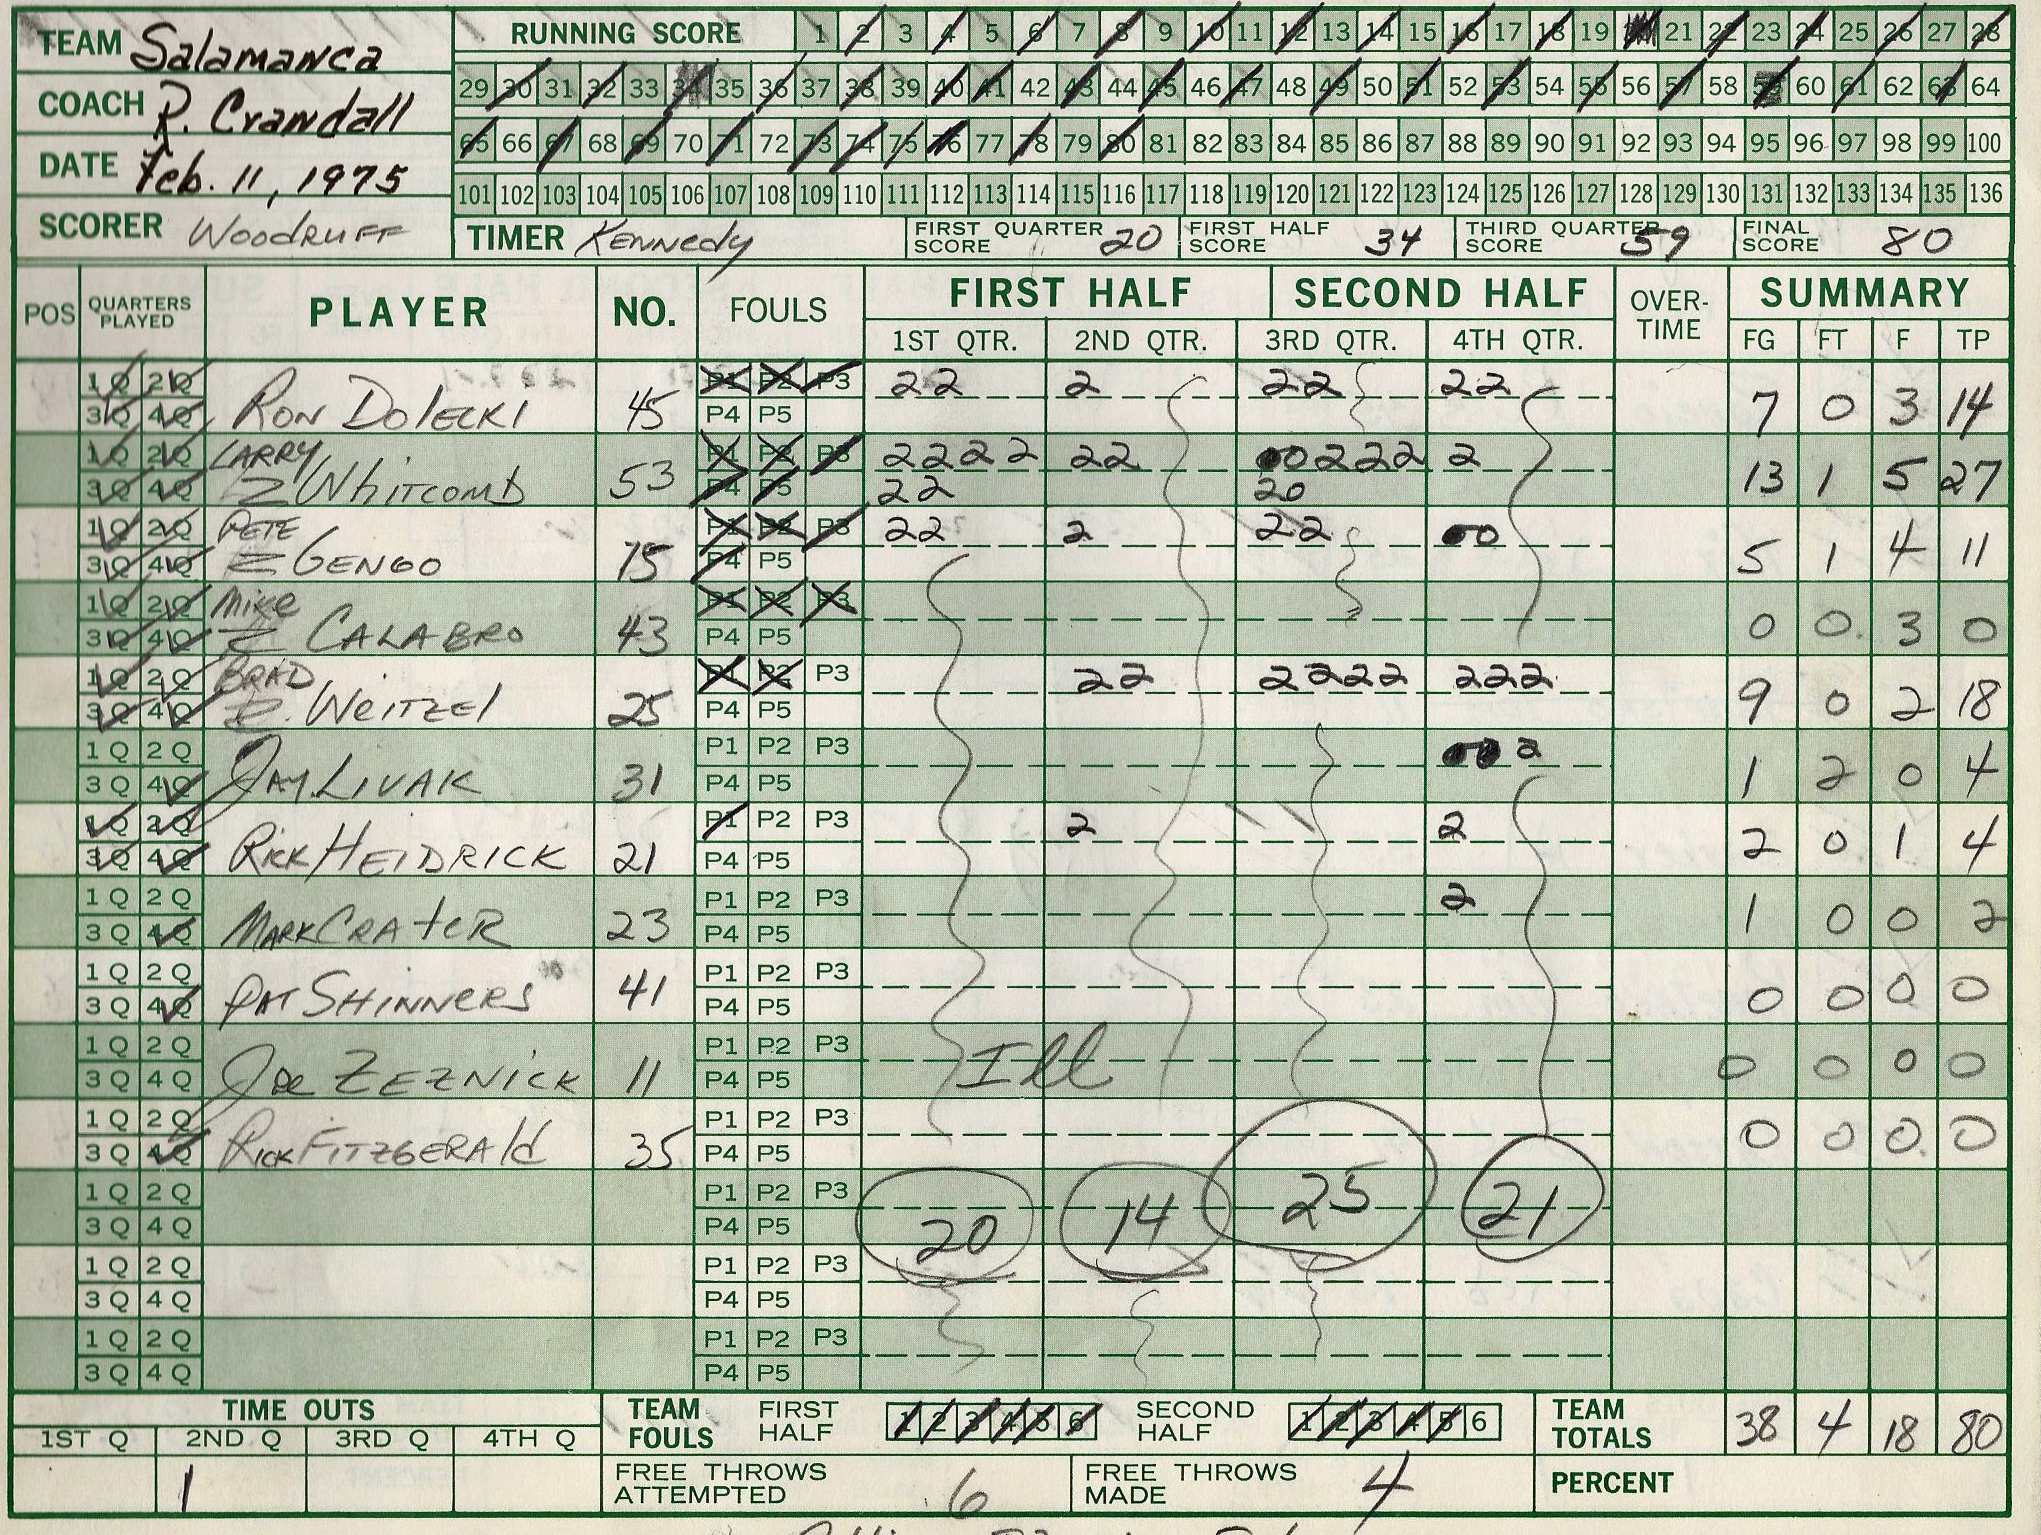 TEAM Salamanca
COACH R. Crandall
DATE Feb. 11, 1975
SCORER Woodruff
RUNNING SCORE 1 2 3 4 5 6 7 8 9 10 11 12 13 14 15 16 17 18 19 20 21 22 23 24 25 26 27 28
29 30 31 32 33 34 35 36 37 38 39 40 41 42 43 44 45 46 47 48 49 50 51 52 53 54 55 56 57 58 59 60 61 62 63 64
65 66 67 68 69 70 71 72 73 74 75 76 77 78 79 80 81 82 83 84 85 86 87 88 89 90 91 92 93 94 95 96 97 98 99 100
101 102 103 104 105 106 107 108 109 110 111 112 113 114 115 116 117 118 119 120 121 122 123 124 125 126 127 128 129 130 131 132 133 134 135 136
TIMER Kennedy FIRST QUARTER SCORE 20 FIRST HALF SCORE 34 THIRD QUARTER SCORE 59 FINAL SCORE 80
POS QUARTERS PLAYED PLAYER NO. FOULS FIRST HALF SECOND HALF OVER-TIME SUMMARY
1ST QTR. 2ND QTR. 3RD QTR. 4TH QTR. FG FT F TP
1Q 2Q P1 P2 P3 22 2 22 22
3Q 4Q RON DOLECKI 45 P4 P5 7 0 3 14
1Q 2Q LARRY P1 P2 P3 2222 22 00222 2
3Q 4Q WHITCOMB 53 P4 P5 22 20 13 1 5 27
1Q 2Q PETE P1 P2 P3 22 2 22 00
3Q 4Q GENGO 15 P4 P5 5 1 4 11
1Q 2Q Mike P1 P2 P3
3Q 4Q CALABRO 43 P4 P5 0 0. 3 0
1Q 2Q BRAD P1 P2 P3 22 2222 222
3Q 4Q WEITZEl 25 P4 P5 9 0 2 18
1Q 2Q P1 P2 P3 2
3Q 4Q JAY LIVAK 31 P4 P5 1 2 0 4
1Q 2Q P1 P2 P3 2 2
3Q 4Q RICK HEIDRICK 21 P4 P5 2 0 1 4
1Q 2Q P1 P2 P3 2
3Q 4Q MARK CRATER 23 P4 P5 1 0 0 2
1Q 2Q P1 P2 P3
3Q 4Q PAT SHINNERS 41 P4 P5 0 0 0 0
1Q 2Q P1 P2 P3
3Q 4Q Joe ZEZNICK 11 P4 P5 Ill 0 0 0 0
1Q 2Q P1 P2 P3
3Q 4Q RICK FITZGERALd 35 P4 P5 0 0 0. 0
1Q 2Q P1 P2 P3
3Q 4Q P4 P5 20 14 25 21
1Q 2Q P1 P2 P3
3Q 4Q P4 P5
1Q 2Q P1 P2 P3
3Q 4Q P4 P5
TIME OUTS TEAM FOULS FIRST HALF 1 2 3 4 5 6 SECOND HALF 1 2 3 4 5 6 TEAM TOTALS 38 4 18 80
1ST Q 2ND Q 3RD Q 4TH Q
1 FREE THROWS ATTEMPTED 6 FREE THROWS MADE 4 PERCENT